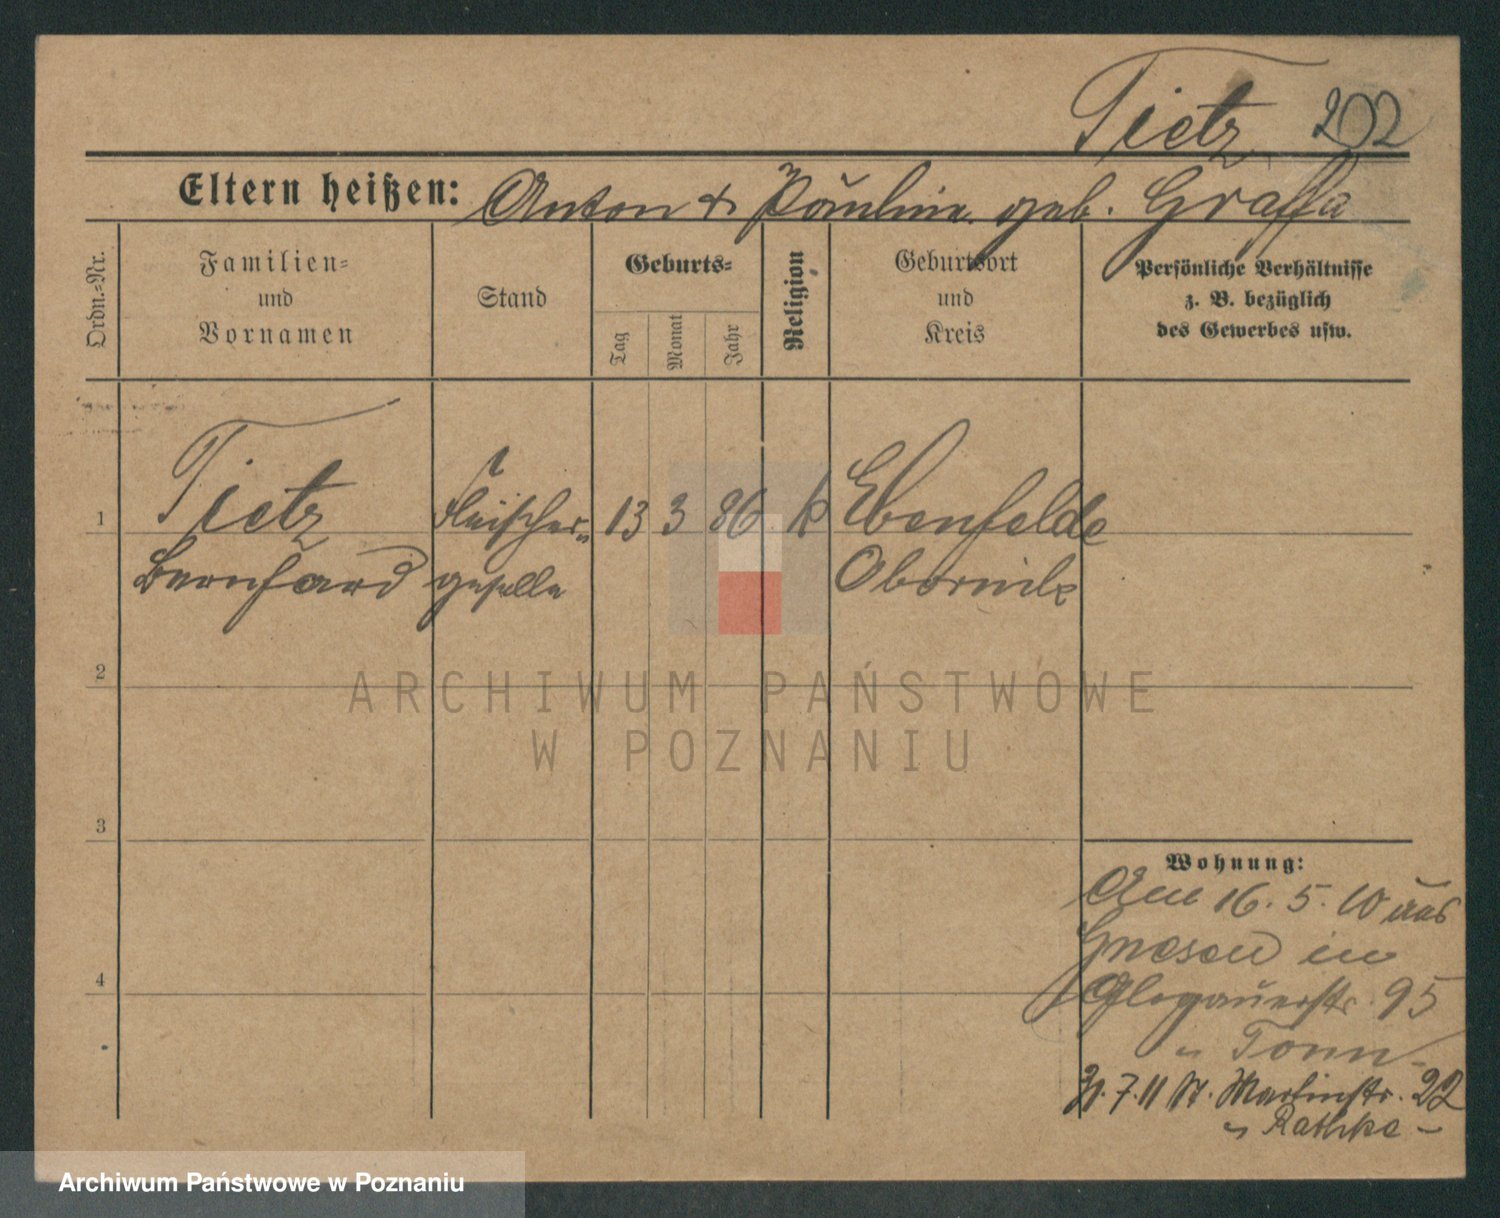 Tietz 202
Eltern heißen: Anton & Pauline geb. Graffa
Ordn.-Nr.
Familien-
und
Vornamen
Stand
Geburts-
Tag
Monat
Jahr
Religion
Geburtsort
und
Kreis
Persönliche Verhältnisse
z. B. bezüglich
des Gewerbes usw.
1 Tietz Fleischer- 13 3 86 k Ebenfelde
Bernhard geselle Obornik
2
3
4
Wohnung:
Am 16. 5. 10 aus
Gnesen in
Glogauerstr. 95
" Tonn
7. 11 St. Martinstr. 22
" Rathke -
ARCHIWUM PAŃSTWOWE
W POZNANIU
Archiwum Państwowe w Poznaniu